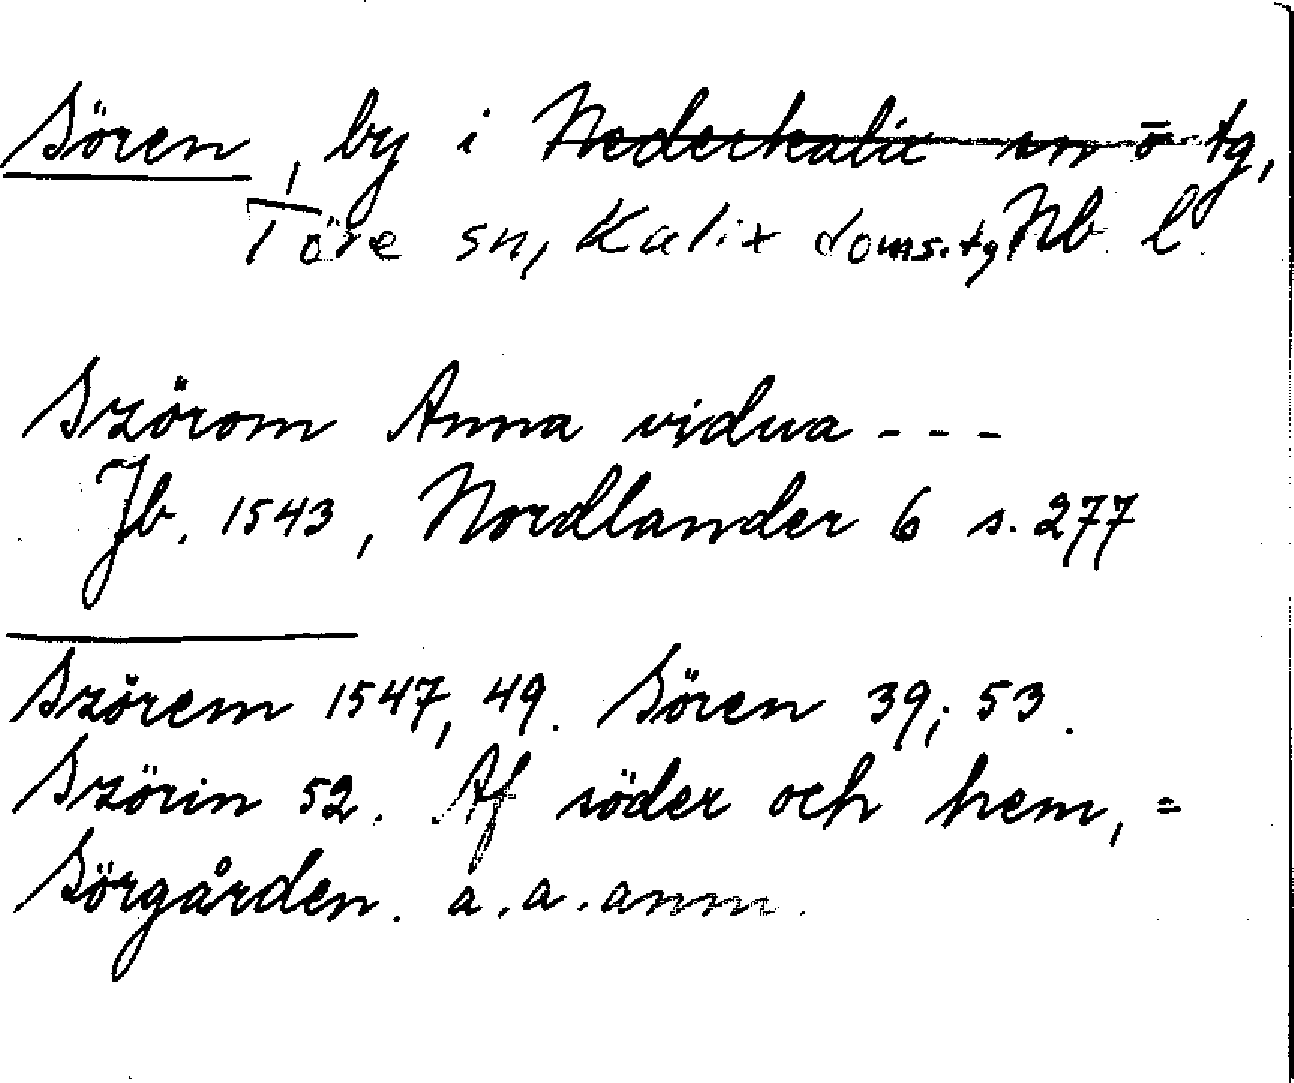 Sören, by i Nederkalix sn ö tg,
Töre sn, Kalix doms.tg Nb. l.
Szörom Anna vidua - - -
Jb. 1543, Nordlander 6 s. 277
Szörem 1547, 49. Sören 39; 53.
Szörin 52. Af söder och hem, =
Sörgården. a.a. anm.